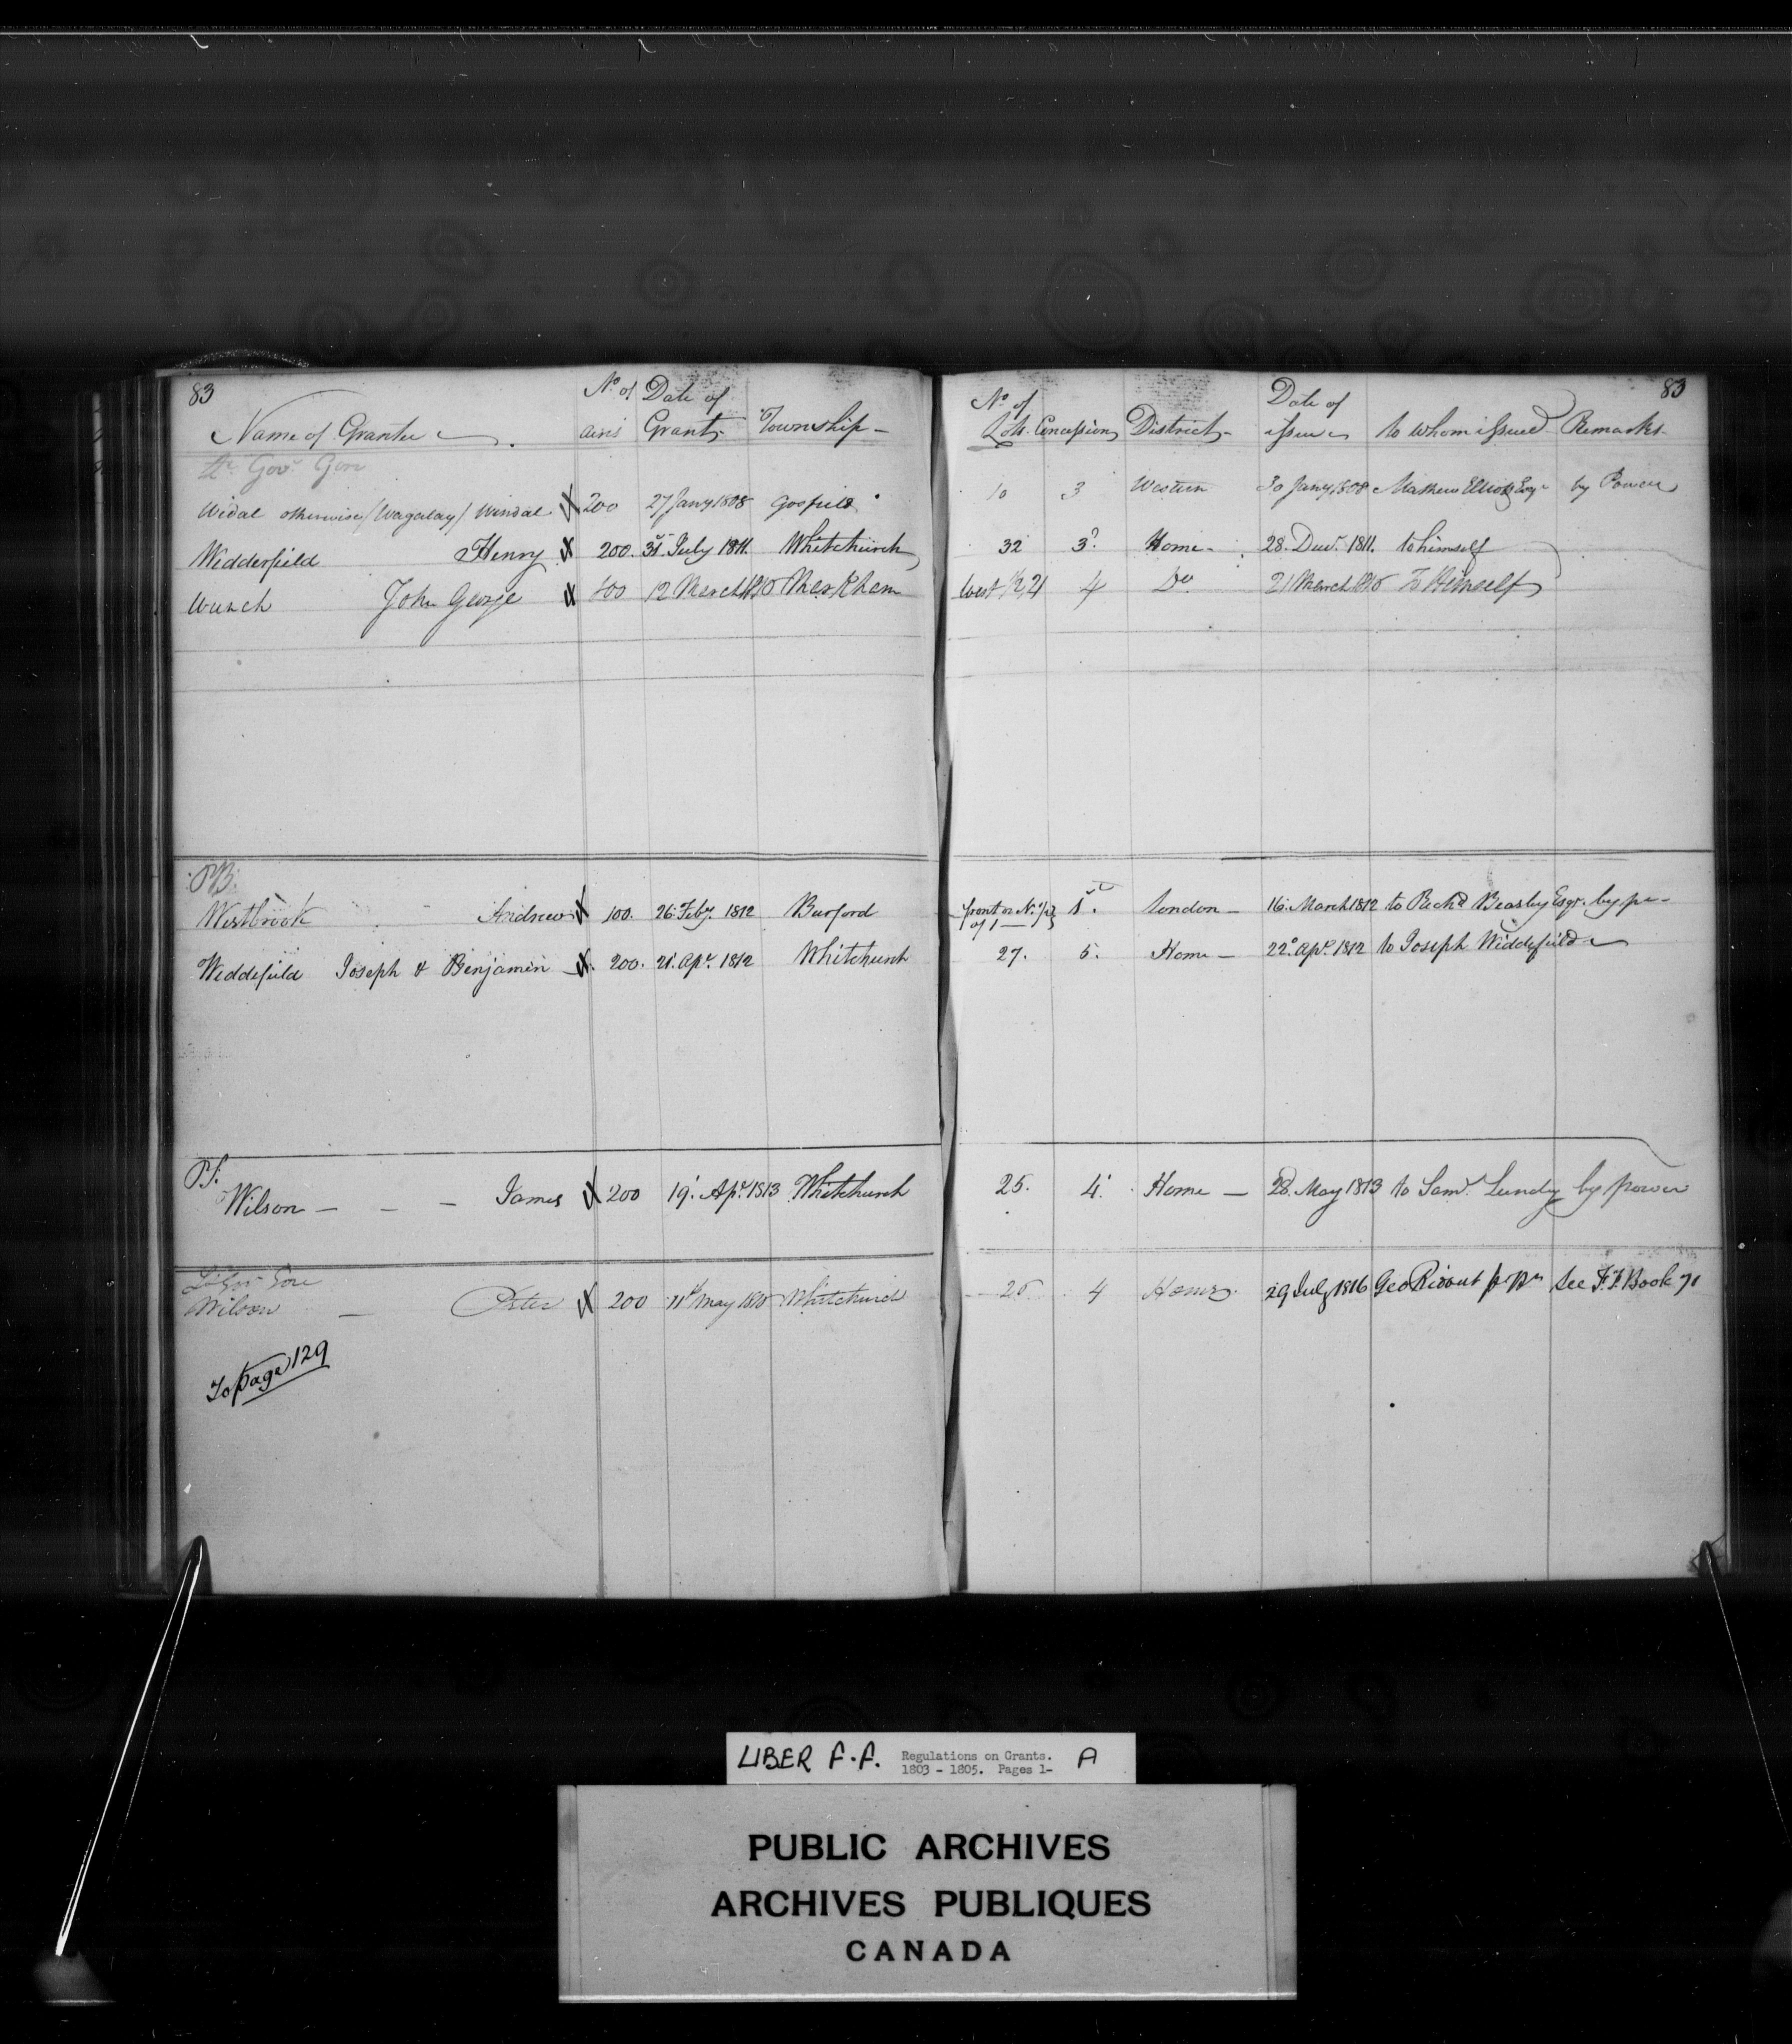 83
83
Name of Grantee
No. of acres
Date of Grant
Township
No. of Lots
Concession
District
Date of issue
to whom issued
Remarks
Lt. Govr. Gore
Widal otherwise (Wagalay) Windal 200 27 Jany 1808 Gosfield 10 3 Western 30 Jany 1808 Mathew Elliott Esqr by Power
Wedderfield Henry 200. 31st July 1811. Whitchurch 32 3d Home 28. Decr. 1811. to himself
Wunch John George 100 12 March 1810 Markham West 1/2, 21 4 Do 21 March 1810 To Himself
P.B.
Westbrook Andrew 100. 26. Feby. 1812 Burford front or N. 1/2 of 1 1st. London 16. March 1812 to Richd Beasley Esqr. by pr
Weddifield Joseph & Benjamin 200. 21. Apr. 1812 Whitchurch 27. 5. Home 22d Apl. 1812 to Joseph Widdifield
P.S.
Wilson James 200 19. Apr. 1813 Whitchurch 25. 4. Home 28. May 1813 to Saml. Lundy by power
Lt Govr Gore
Wilson Peter 200 11t May 1810 Whitchurch 25 4 Home 29 July 1816 Geo Ridout p. pr See F.F. Book 71
To page 129
LIBER F.F. Regulations on Grants. A
1803 - 1805. Pages 1-
PUBLIC ARCHIVES
ARCHIVES PUBLIQUES
CANADA